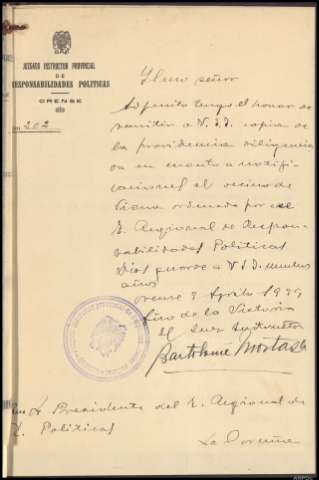 JUZGADO INSTRUCTOR PROVINCIAL
DE
RESPONSABILIDADES POLITICAS
ORENSE
202
Ilmo señor
Adjunto tengo el honor de
remitir a V. I. copia de
la providencia diligencia
da en cuanto a notifi
cacional el vecino de
Viana ordenada por ese
T. Regional de Respon
sabilidades Politicas
Dios guarde a V I muchos
años
Orense 9 Agosto 1939
Año de la Victoria
El Juez Instructor
Bartolomé Mostaza
Presidente del T. Regional de
R. Politicas
La Coruña